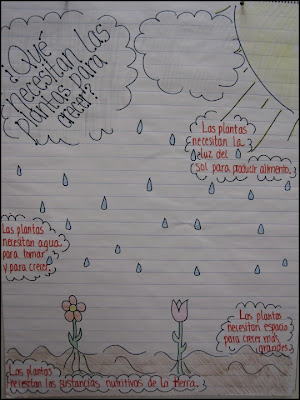 ¿Qué
necesitan las
plantas para
crecer?
Las plantas
necesitan la
luz del
sol para producir alimento.
Las plantas
necesitan agua
para tomar
y para crecer.
Las plantas
necesitan espacio
para crecer más
grandes.
Las plantas
necesitan las sustancias nutritivas de la tierra.